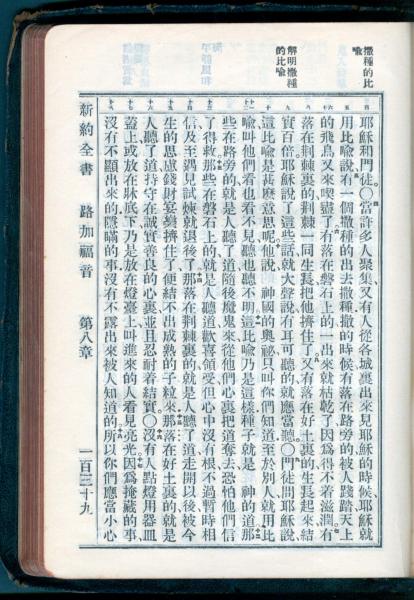 撒種的比
喩
解明撒種
的比喩
耶穌和門徒〇當許多人聚集又有人從各城裏出來見耶穌的時候、耶穌就
用比喩說有一個撒種的出去撒種撒的時候有落在路旁的被人踐踏天上
的飛鳥又來喫盡了有落在磐石上的一出來就枯乾了因爲得不着滋潤有
落在荆棘裏的荆棘一同生長把他擠住了又有落在好土裏的生長起來結
實百倍耶穌說了這些話就大聲說有耳可聽的就應當聽〇門徒問耶穌說
這比喩是甚麼意思呢他說　神國的奧祕只叫你們知道至於別人就用比
喩叫他們看也看不見聽也聽不明這比喩乃是這樣種子就是　神的道那
些在路旁的就是人聽了道隨後魔鬼來從他們心裏把道奪去恐怕他們信
了得救那些在磐石上的就是人聽道歡喜領受但心中沒有根不過暫時相
信及至遇見試煉就退後了那落在荆棘裏的就是人聽了道走開以後被今
生的思慮錢財宴樂擠住了便結不出成熟的子粒來那落在好土裏的就是
人聽了道持守在誠實善良的心裏並且忍耐着結實〇沒有人點燈用器皿
蓋上或放在牀底下乃是放在燈臺上叫進來的人看見亮光因爲掩藏的事
沒有不顯出來的隱瞞的事沒有不露出來被人知道的所以你們應當小心
新約全書　路加福音　第八章　一百三十九